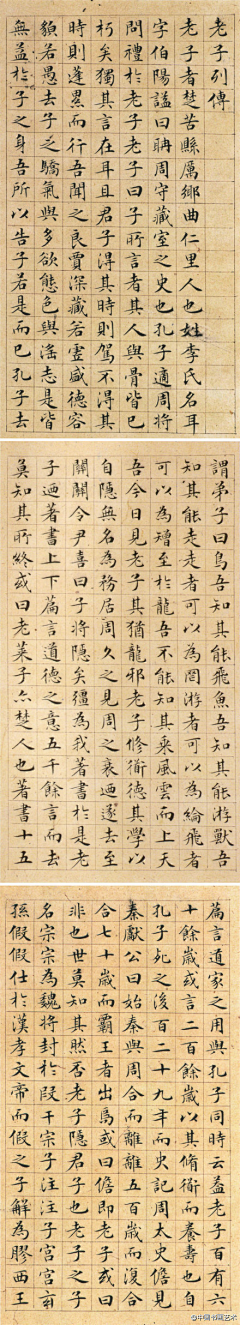 老子列傳
老子者楚苦縣厲鄉曲仁里人也姓李氏名耳
字伯陽諡曰耼周守藏室之史也孔子適周將
問禮於老子老子曰子所言者其人與骨皆已
朽矣獨其言在耳且君子得其時則駕不得其
時則蓬累而行吾聞之良賈深藏若虛盛德容
貌若愚去子之驕氣與多欲態色與淫志是皆
無益於子之身吾所以告子若是而已孔子去
謂弟子曰鳥吾知其能飛魚吾知其能游獸吾
知其能走走者可以為罔游者可以為綸飛者
可以為矰至於龍吾不能知其乘風雲而上天
吾今日見老子其猶龍邪老子脩衜德其學以
自隱無名為務居周久之見周之衰迺遂去至
關關令尹喜曰子將隱矣彊為我著書於是老
子迺著書上下篇言道德之意五千餘言而去
莫知其所終或曰老萊子亦楚人也著書十五
篇言道家之用與孔子同時云蓋老子百有六
十餘歲或言二百餘歲以其脩衜而養壽也自
孔子死之後百二十九年而史記周太史儋見
秦獻公曰始秦與周合而離離五百歲而復合
合七十歲而霸王者出焉或曰儋即老子或曰
非也世莫知其然否老子隱君子也老子之子
名宗宗為魏將封於段干宗子注注子宮宮玄
孫假假仕於漢孝文帝而假之子解為膠西王
@中国书画艺术